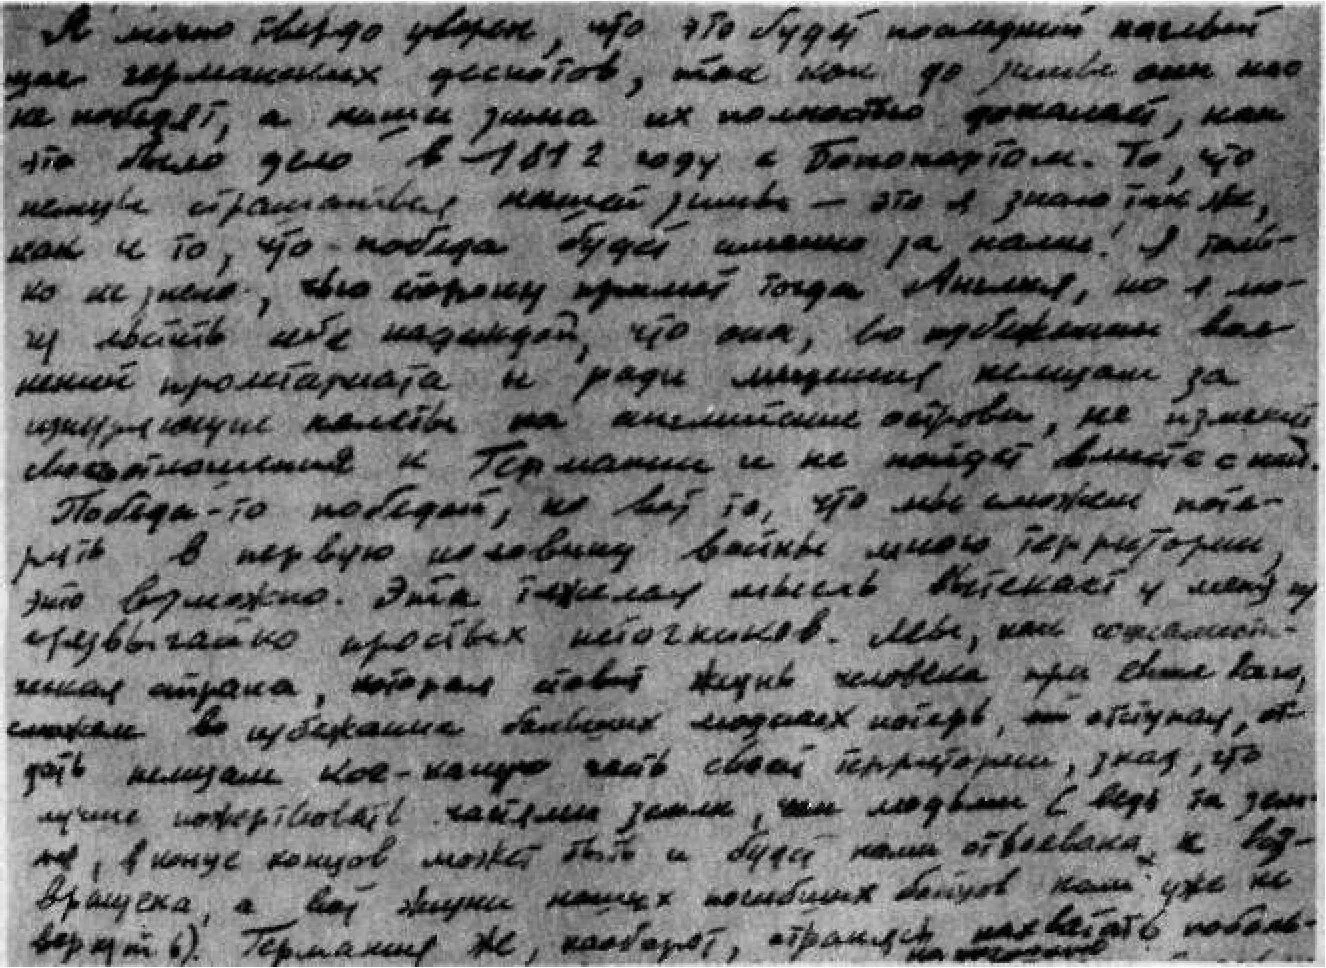 Я лично твердо уверен, что это будет последний наглый
шаг германских деспотов, так как до зимы они нас
не победят, а наша зима их полностью доканает, как
это было дело в 1812 году с Бонопартом. То, что
немцы страшатся нашей зимы — это я знаю так же,
как и то, что победа будет именно за нами! Я толь-
ко не знаю, чью сторону примет тогда Англия, но я мо-
гу льстить себе надеждой, что она, во избежании вол-
нений пролетариата и ради мщения немцам за
изнуряющие налеты на английские острова, не изменит
своего отношения к Германии и не пойдет вместе с ней.
Победа-то победой, но вот то, что мы сможем поте-
рять в первую половину войны много территории,
это возможно. Эта тяжелая мысль вытекает у меня из
чрезвычайно простых источников. Мы, как социалисти-
ческая страна, которая ставит жизнь человека при свыше всего,
сможем во избежание больших людских потерь, отступая, от-
дать немцам кое-какую часть своей территории, зная, что
лучше пожертвовать частями земли, чем людьми (ведь та земля
же, в конце концов может быть и будет нами отвоевана и воз-
вращена, а вот жизни наших погибших бойцов нам уже не
вернуть). Германия же, наоборот, стремясь нахватать поболь-